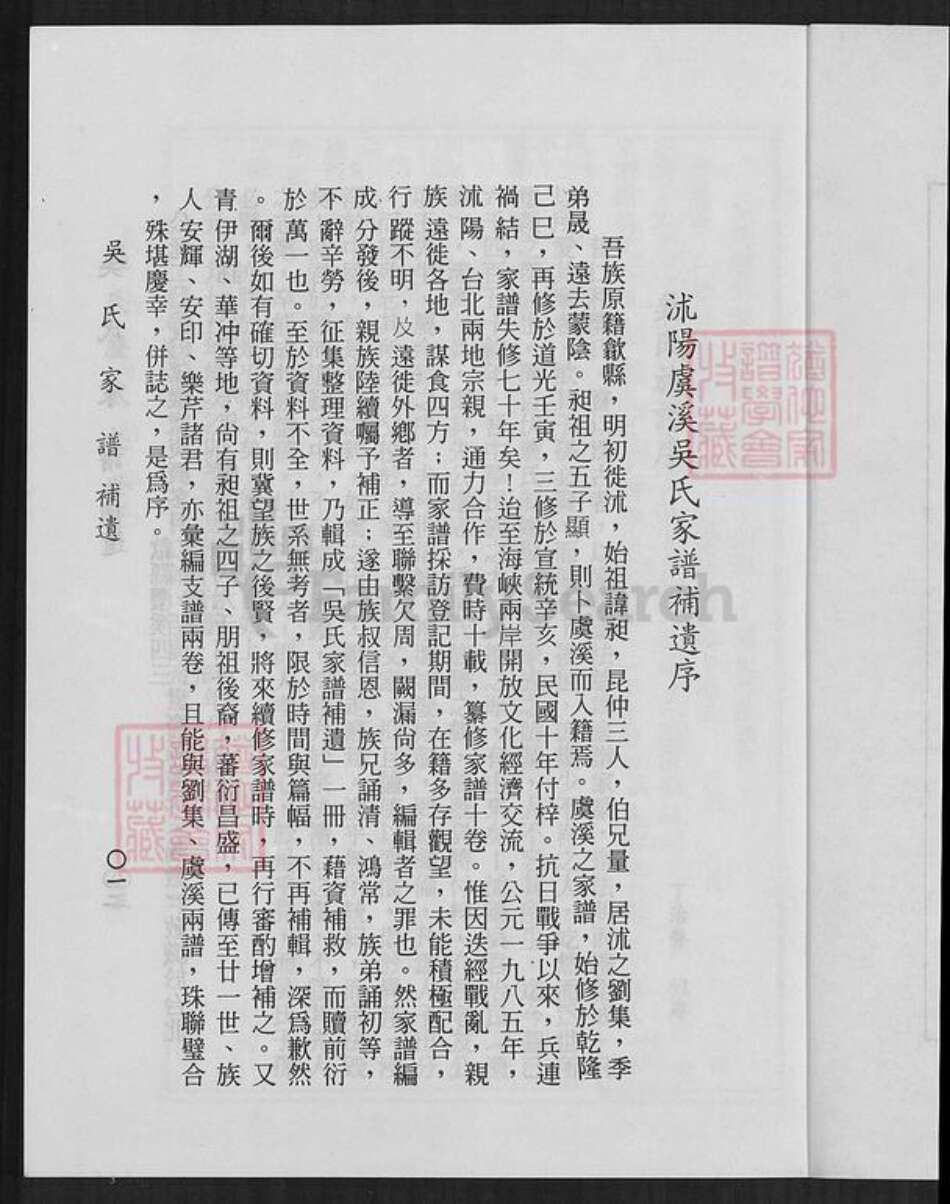 沭陽虞溪吳氏家譜補遺序
吾族原籍歙縣，明初徙沭，始祖諱昶，昆仲三人，伯兄量，居沭之劉集，季
弟晟、遠去蒙陰。昶祖之五子顯，則卜虞溪而入籍焉。虞溪之家譜，始修於乾隆
己巳，再修於道光壬寅，三修於宣統辛亥，民國十年付梓。抗日戰爭以來，兵連
禍結，家譜失修七十年矣！迨至海峽兩岸開放文化經濟交流，公元一九八五年，
沭陽、台北兩地宗親，通力合作，費時十載，纂修家譜十卷。惟因迭經戰亂，親
族遠徙各地，謀食四方；而家譜採訪登記期間，在籍多存觀望，未能積極配合，
行蹤不明，及遠徙外鄉者，導至聯繫欠周，闕漏尚多，編輯者之罪也。然家譜編
成分發後，親族陸續囑予補正；遂由族叔信恩，族兄誦清、鴻常，族弟誦初等，
不辭辛勞，征集整理資料，乃輯成「吳氏家譜補遺」一冊，藉資補救，而贖前衍
於萬一也。至於資料不全，世系無考者，限於時間與篇幅，不再補輯，深爲歉然
。爾後如有確切資料，則冀望族之後賢，將來續修家譜時，再行審酌增補之。又
青伊湖、華冲等地，尚有昶祖之四子、朋祖後裔，蕃衍昌盛，已傳至廿一世、族
人安輝、安印、樂芹諸君，亦彙編支譜兩卷，且能與劉集、虞溪兩譜，珠聯璧合
，殊堪慶幸，併誌之，是爲序。
吳氏家譜補遺
〇一三
FamilySearch
譜學會
收藏
收藏